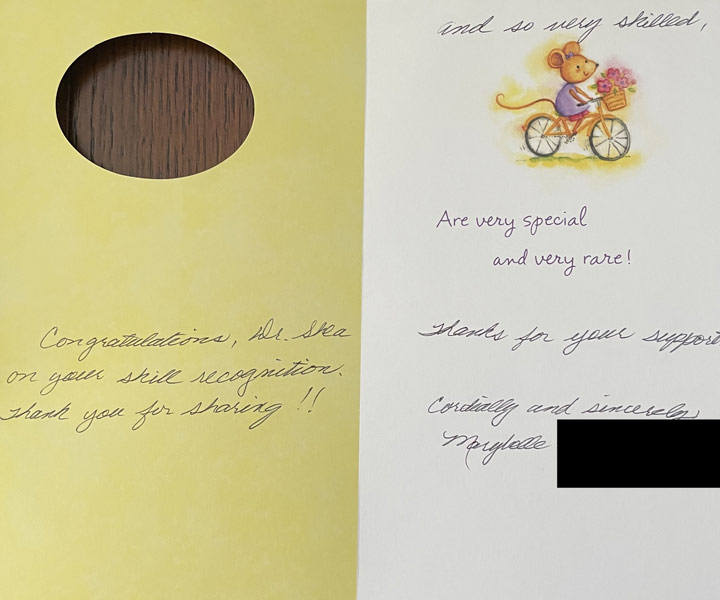 Congratulations, Dr. Shea
on your skill recognition.
Thank you for sharing !!
and so very skilled,
Are very special
and very rare!
Thanks for your support
Cordially and sincerely
Marybelle